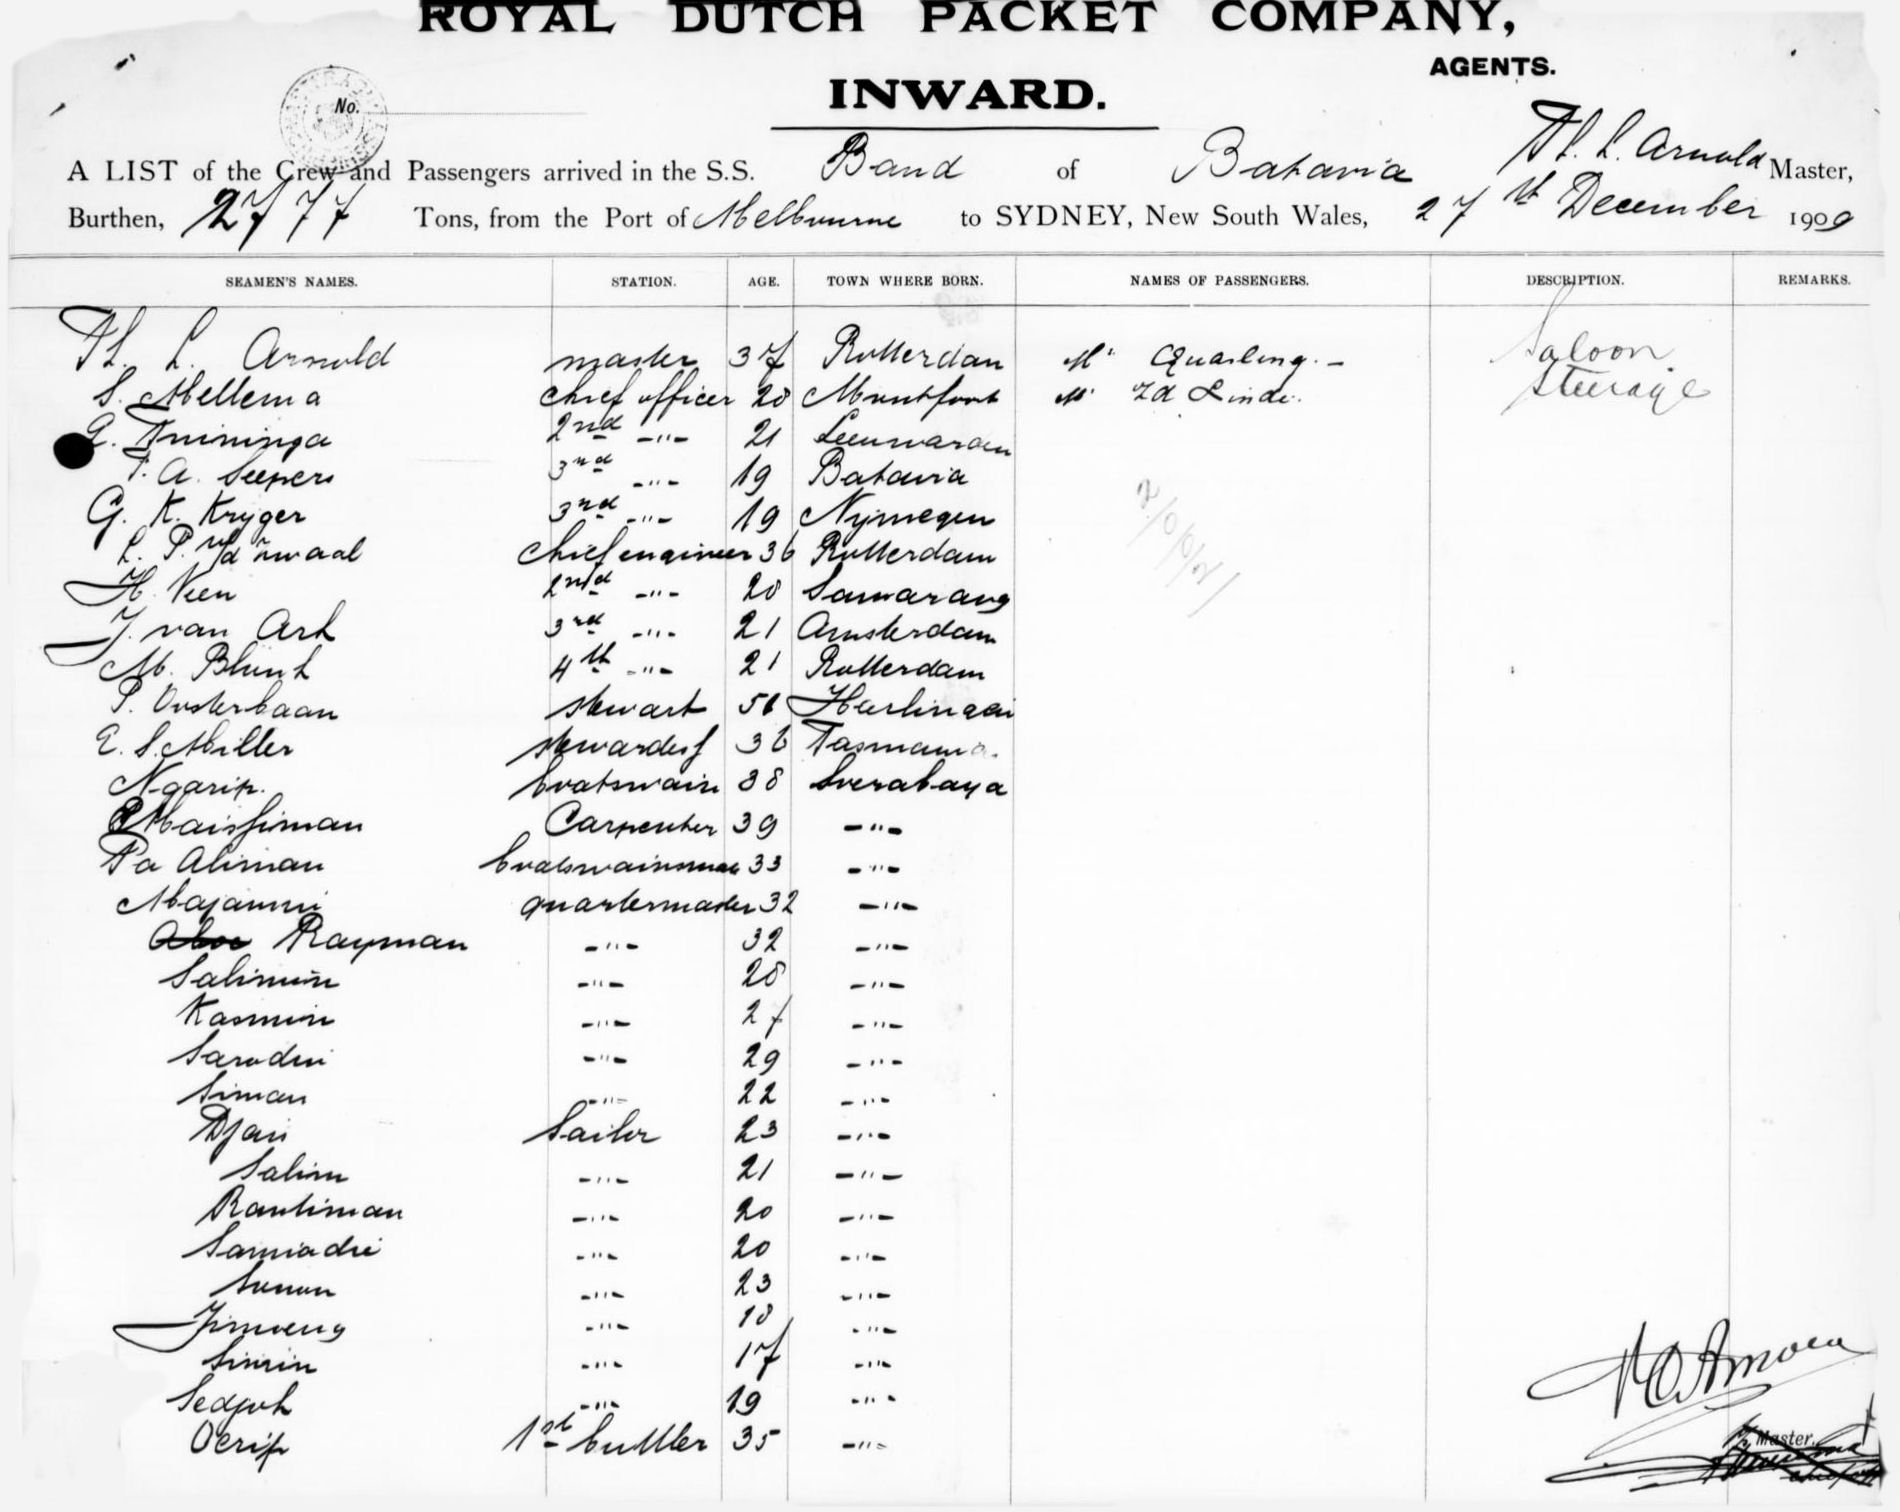 ROYAL DUTCH PACKET COMPANY,
AGENTS.
INWARD.
No.
A LIST of the Crew and Passengers arrived in the S.S. Band of Batavia Th. L. Arnold Master,
Burthen, 2777 Tons, from the Port of Melbourne to SYDNEY, New South Wales, 27th December 1909
SEAMEN'S NAMES. STATION. AGE. TOWN WHERE BORN. NAMES OF PASSENGERS. DESCRIPTION. REMARKS.
Th. L. Arnold master 37 Rotterdam Mr Quarling. – Saloon
S. Mellema chief officer 28 Montfoort Mr vd Linde. Steerage
G. Tuininga 2nd -"- 21 Leeuwarden
T. A. Seepers 3nd -"- 19 Batavia
G. K. Kryger 3nd -"- 19 Nymegen
L. P. v/d Zwaal chief engineer 36 Rotterdam
H. Veen 2nd -"- 28 Samarang
J. van Ark 3rd -"- 21 Amsterdam
M. Blunk 4th -"- 21 Rotterdam
P. Oosterbaan stewart 51 Harlingen
E. S. Miller stewardess 36 Tasmania.
Ngarip. boatswain 38 Soerabaya
Maissiman Carpenter 39 -"-
Pa Aliman boatswainsmate 33 -"-
Majanni quartermaster 32 -"-
Rayman -"- 32 -"-
Salimin -"- 28 -"-
Kasmin -"- 27 -"-
Sarodin -"- 29 -"-
Siman -"- 22 -"-
Djan Sailor 23 -"-
Salim -"- 21 -"-
Rantiman -"- 20 -"-
Samiadie -"- 20 -"-
Sunon -"- 23 -"-
Jimoeng -"- 18 -"-
Simin -"- 17 -"-
Sedjoh -"- 19 -"-
Oerip 1st buttler 35 -"-
Master.